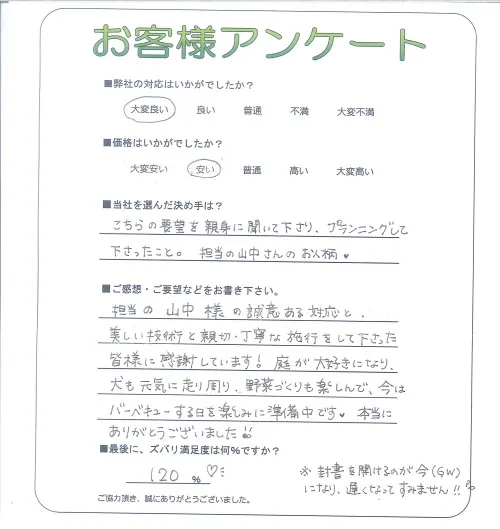 お客様アンケート
■弊社の対応はいかがでしたか？
大変良い 良い 普通 不満 大変不満
■価格はいかがでしたか？
大変安い 安い 普通 高い 大変高い
■当社を選んだ決め手は？
こちらの要望を親身に聞いて下さり、プランニングして
下さったこと。 担当の山中さんのお人柄♥
■ご感想・ご要望などをお書き下さい。
担当の山中様の誠意ある対応と、
美しい技術と親切・丁寧な施行をして下さった
皆様に感謝しています！庭が大好きになり、
犬も元気に走り周り、野菜づくりも楽しんで、今は
バーベキューする日を楽しみに準備中です♥ 本当に
ありがとうございました!!
■最後に、ズバリ満足度は何％ですか？
120 % ♡
※封書を開けるのが今(GW)
になり、遅くなってすみません!!
ご協力頂き、誠にありがとうございました。